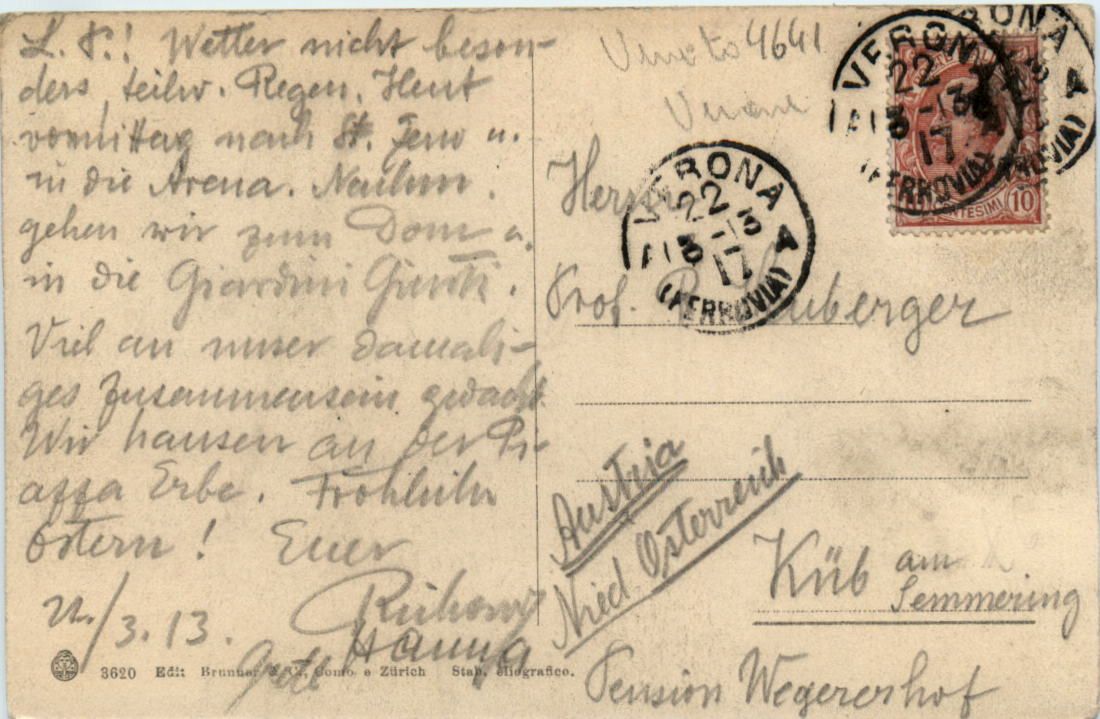 L. F.! Wetter nicht beson-
ders, teilw. Regen. Heut
vormittag nach St. Zeno u.
in die Arena. Nachm.
gehen wir zum Dom u.
in die Giardini Giusti.
Viel an unser damali-
ges Zusammensein gedacht.
Wir hausen an der Pi-
azza Erbe. Fröhliche
Ostern! Euer
22./3.13.
Hanna
Gretl
3620 Edit Brunner & Co., Como e Zürich Stab. eliografico.
4641
VERONA
22
3-13
17
(FERROVIA)
VERONA
22
3-13
17
(FERROVIA)
VERONA
(FERROVIA)
CENTESIMI 10
Herrn
Prof.
Austria
Nied. Österreich
Küb am
Semmering
Pension Wegererhof